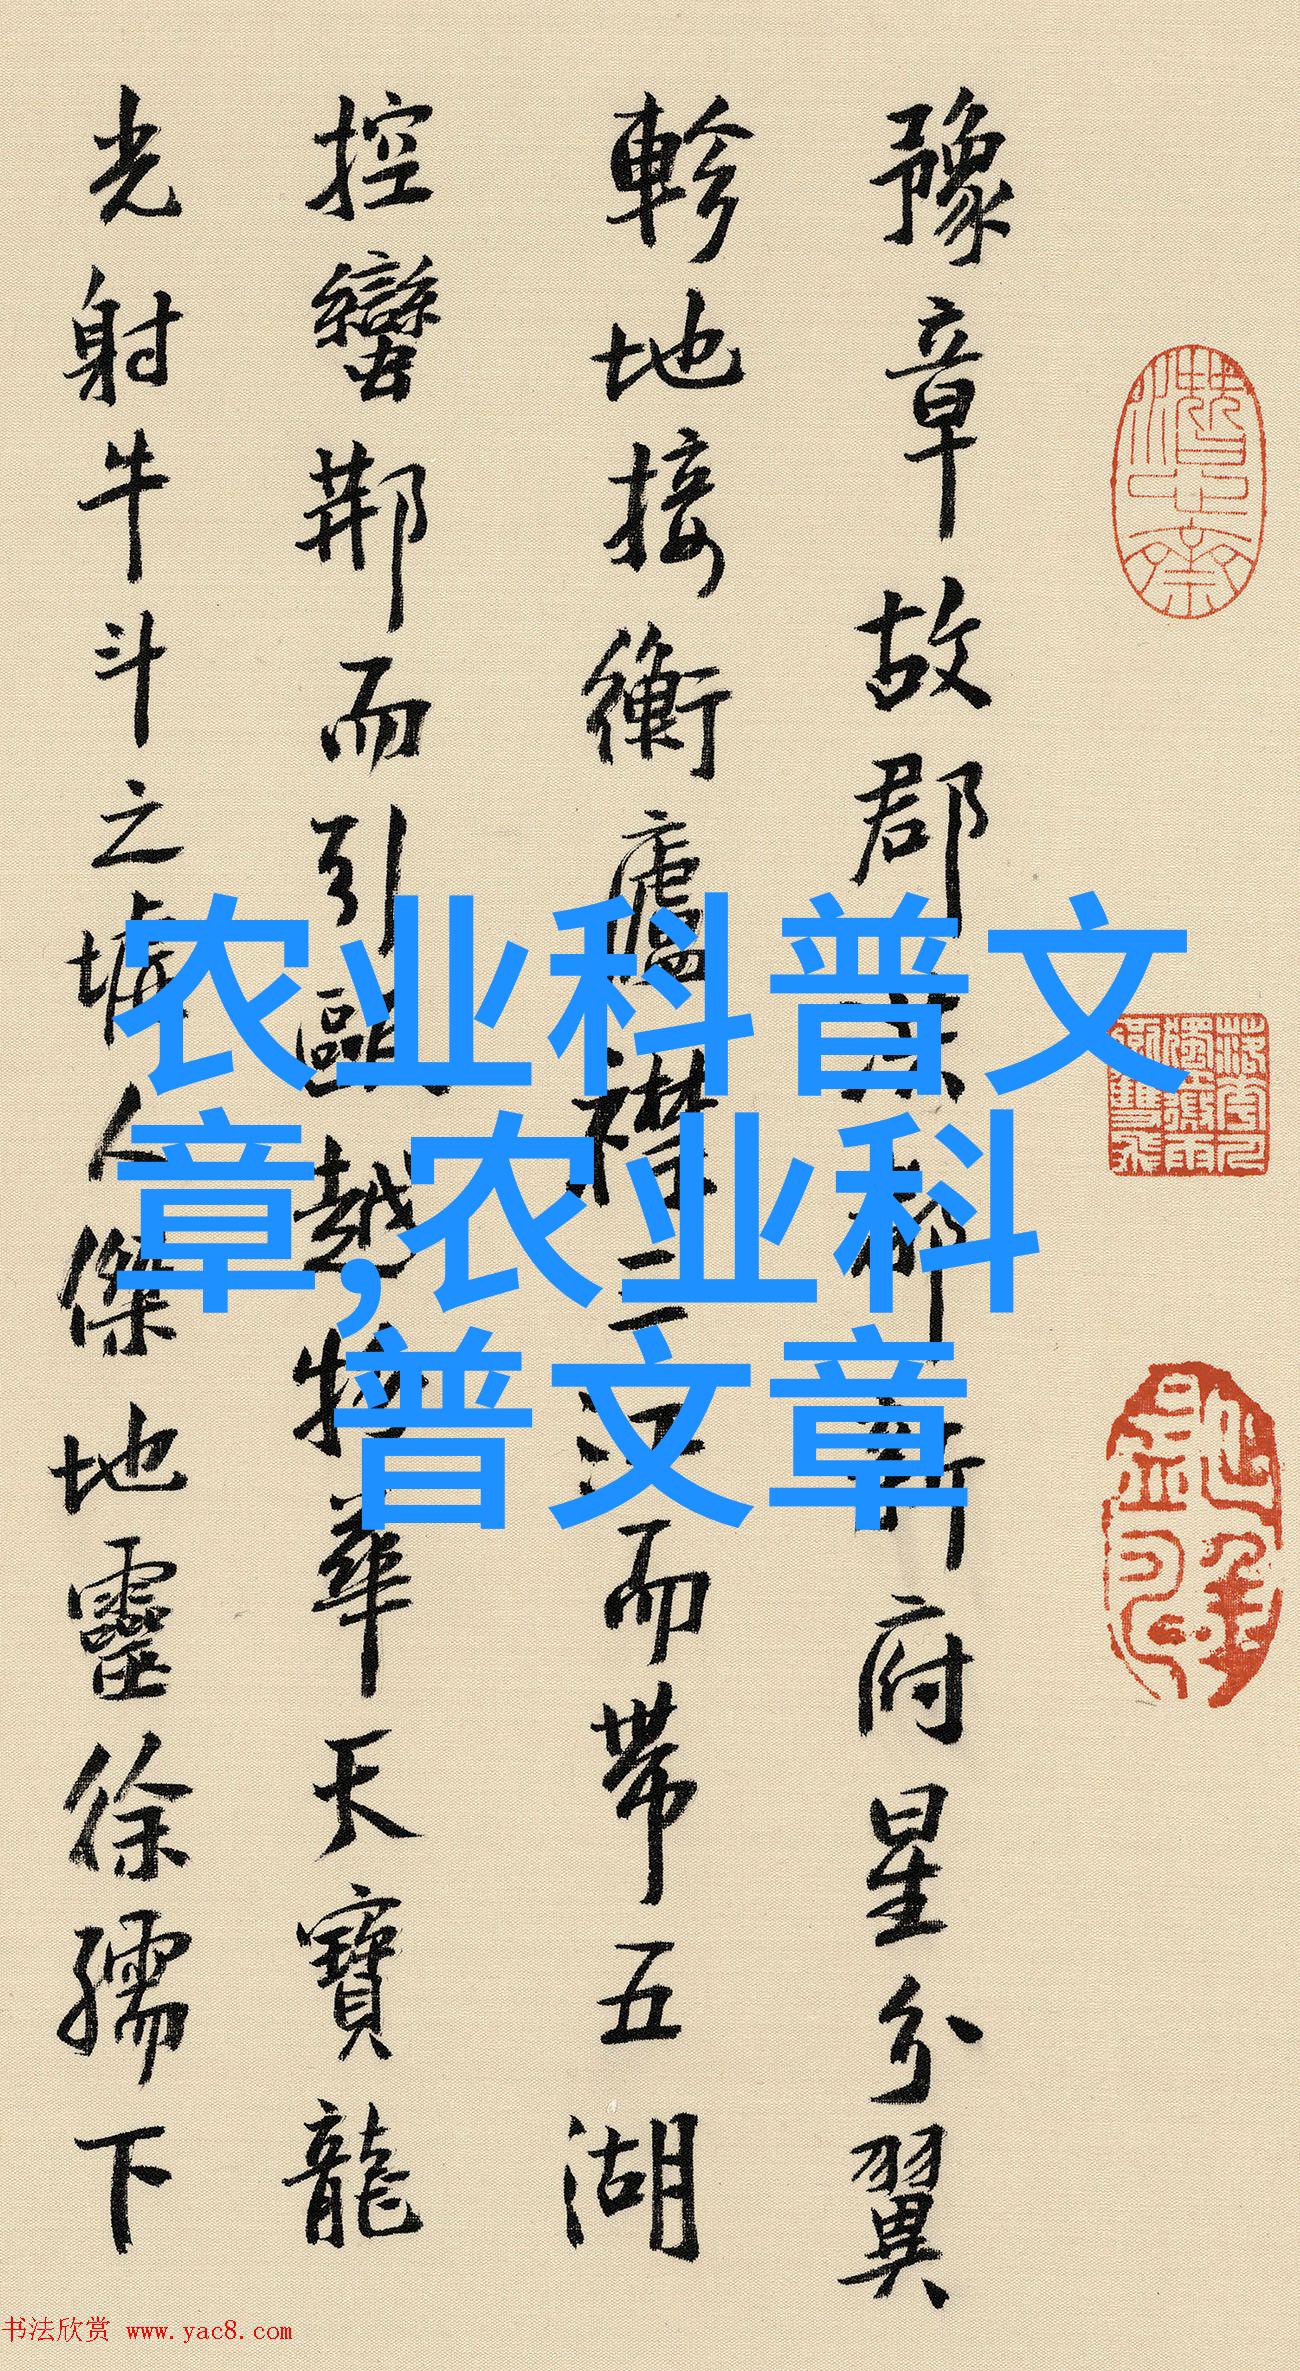 豫章故郡洪都新府星分翼
軫地接衡廬襟三江而帶五湖
控蠻荆而引甌越物華天寶龍
光射牛斗之墟人傑地靈徐孺下
农业科普文
章,农业科
普文章
书法欣赏 www.yac8.com